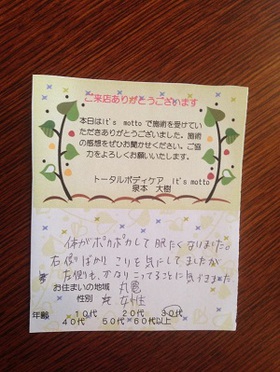 ご来店ありがとうございます
本日はIt's mottoで施術を受けてい
ただきありがとうございました。施術
の感想をぜひお聞かせください。ご協
力をよろしくお願いいたします。
トータルボディケア It's motto
泉本 大樹
体がポカポカして眠たくなりました。
右側ばかりこりを気にしてましたが
左側も、かなりこってることに気づきました
お住まいの地域 丸亀
性別 女性
年齢 10代 20代 30代
40代 50代 60代以上